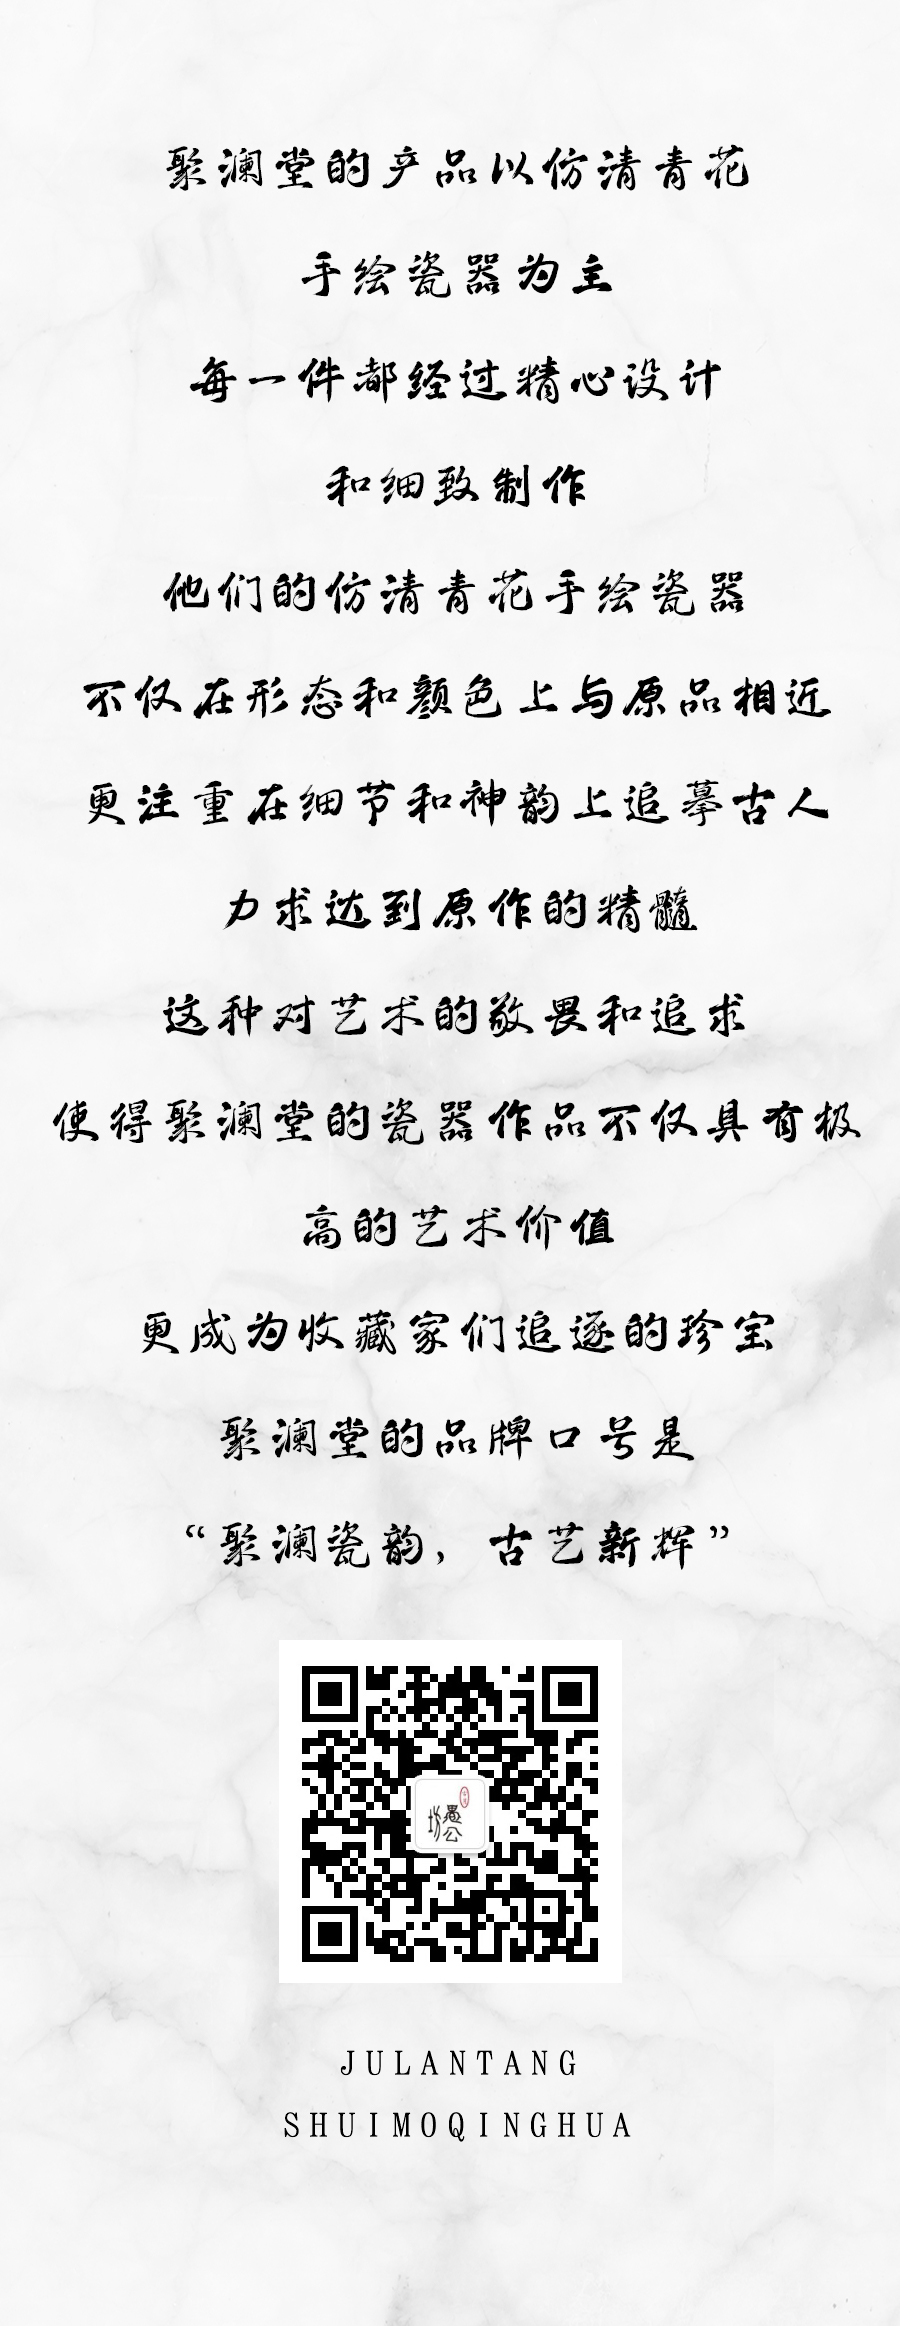 聚澜堂的产品以仿清青花
手绘瓷器为主
每一件都经过精心设计
和细致制作
他们的仿清青花手绘瓷器
不仅在形态和颜色上与原品相近
更注重在细节和神韵上追摹古人
力求达到原作的精髓
这种对艺术的敬畏和追求
使得聚澜堂的瓷器作品不仅具有极
高的艺术价值
更成为收藏家们追逐的珍宝
聚澜堂的品牌口号是
“聚澜瓷韵，古艺新辉”
愚公坊
JULANTANG
SHUIMOQINGHUA